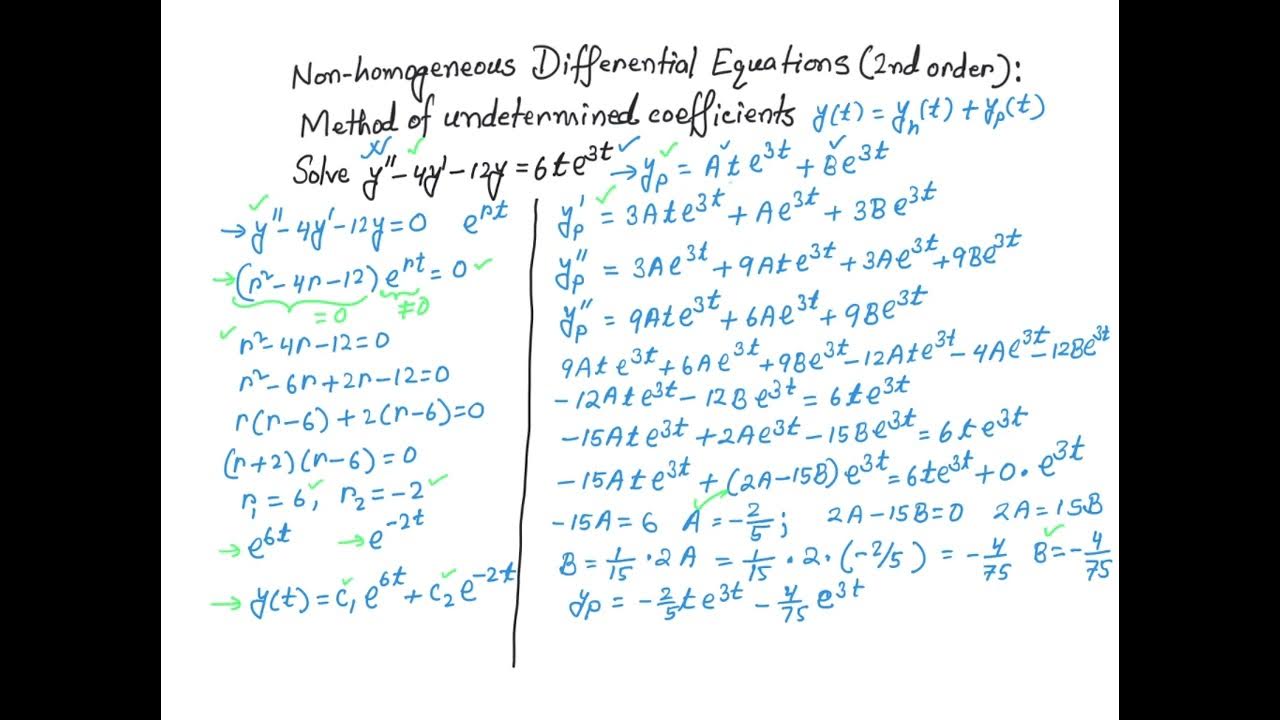 Non-homogeneous Differential Equations (2nd order):
Method of undetermined coefficients y(t) = y_h(t) + y_p(t)
Solve y'' - 4y' - 12y = 6te^{3t} → y_p = Ate^{3t} + Be^{3t}
→ y'' - 4y' - 12y = 0 e^{rt}
→ (r² - 4r - 12) e^{rt} = 0
= 0 ≠0
r² - 4r - 12 = 0
r² - 6r + 2r - 12 = 0
r(r - 6) + 2(r - 6) = 0
(r + 2)(r - 6) = 0
r₁ = 6, r₂ = -2
→ e^{6t} → e^{-2t}
→ y(t) = c₁e^{6t} + c₂e^{-2t}
y_p' = 3Ate^{3t} + Ae^{3t} + 3Be^{3t}
y_p'' = 3Ae^{3t} + 9Ate^{3t} + 3Ae^{3t} + 9Be^{3t}
y_p'' = 9Ate^{3t} + 6Ae^{3t} + 9Be^{3t}
9Ate^{3t} + 6Ae^{3t} + 9Be^{3t} - 12Ate^{3t} - 4Ae^{3t} - 12Be^{3t}
- 12Ate^{3t} - 12Be^{3t} = 6te^{3t}
-15Ate^{3t} + 2Ae^{3t} - 15Be^{3t} = 6te^{3t}
-15Ate^{3t} + (2A - 15B)e^{3t} = 6te^{3t} + 0 · e^{3t}
-15A = 6 A = -2/5; 2A - 15B = 0 2A = 15B
B = 1/15 · 2A = 1/15 · 2 · (-2/5) = -4/75 B = -4/75
y_p = -2/5 te^{3t} - 4/75 e^{3t}